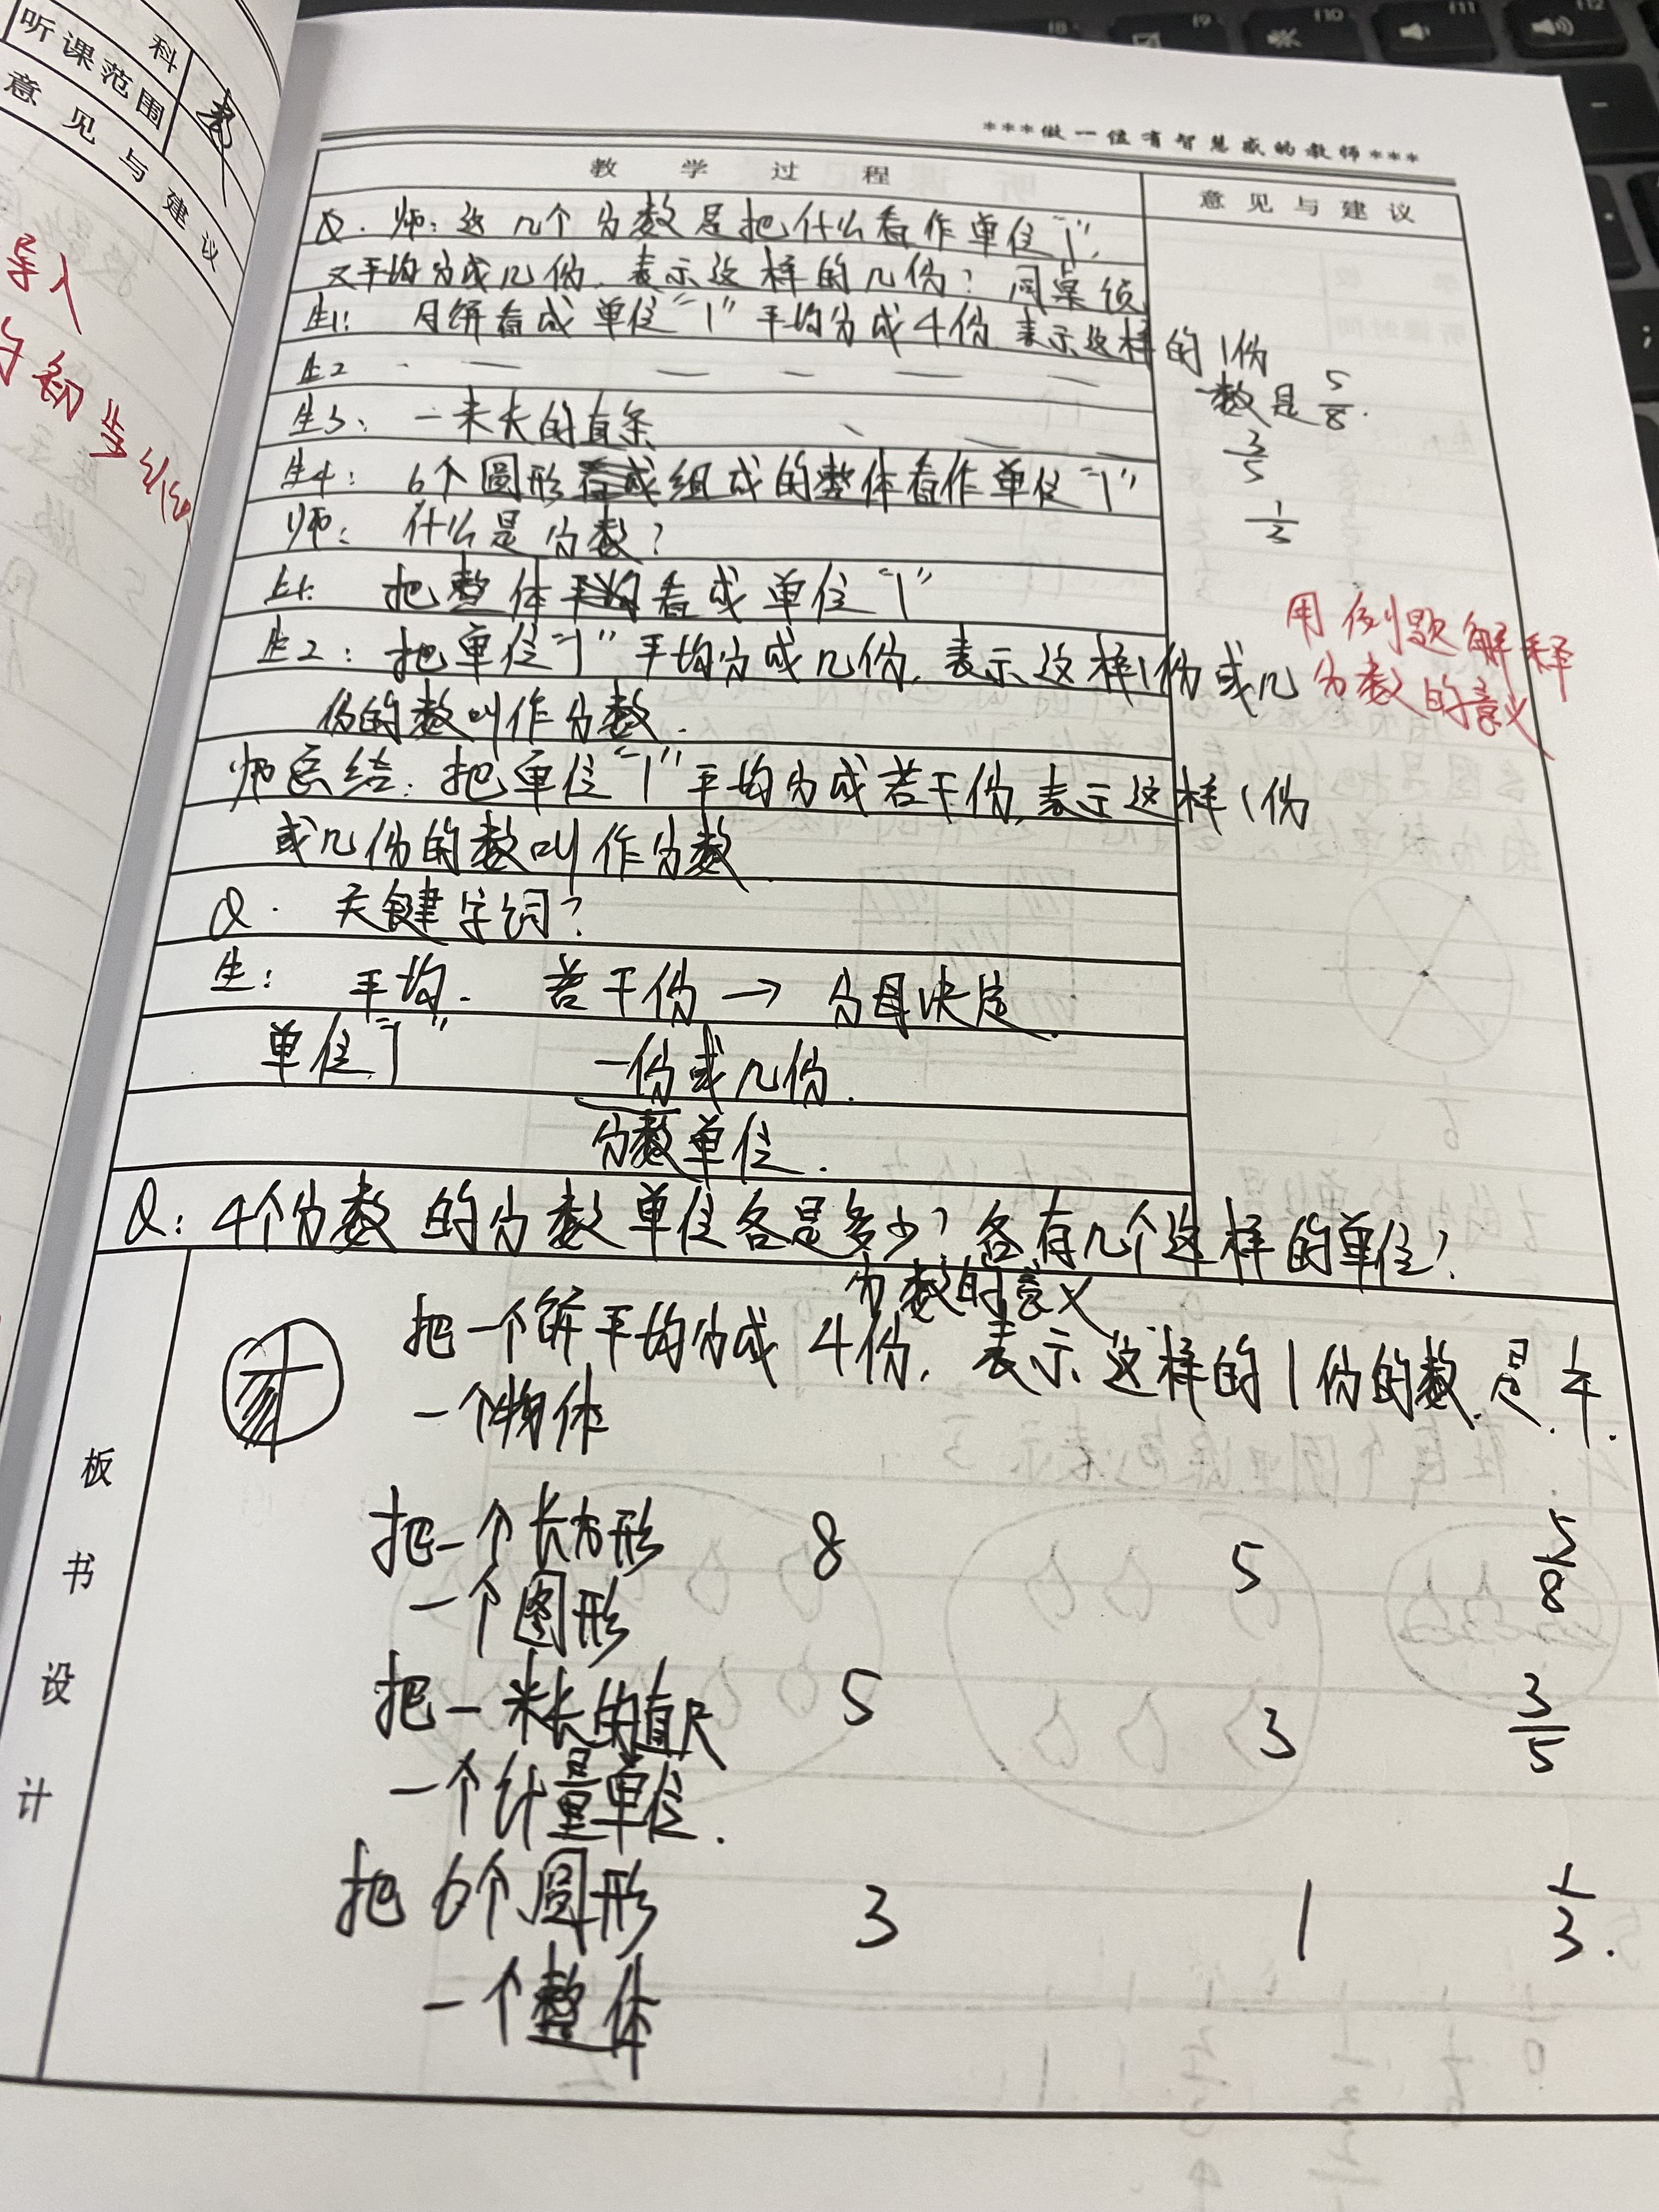 科
听课范围
意见与建议
导入
***做一位有智慧感的教师***
教学过程
意见与建议
Q. 师:这几个分数是把什么看作单位“1”,
又平均分成几份,表示这样的几份?同桌
生1: 月饼看成单位“1”平均分成4份 表示这样的1份
生2 · — — — — —
数是5/8.
生3、 一米长的直条 、 — —
3/5
生4: 6个圆形组成的整体看作单位“1”
1/3
师: 什么是分数?
生1: 把整体看成单位“1”
用例题解释
分数的意义
生2: 把单位“1”平均分成几份,表示这样1份或几
份的数叫作分数.
师总结:把单位“1”平均分成若干份,表示这样1份
或几份的数叫作分数.
Q. 关键字词?
生: 平均. 若干份 → 分母决定.
单位“1” 一份或几份.
分数单位.
Q: 4个分数的分数单位各是多少?各有几个这样的单位?
分数的意义
板书设计
把一个饼平均分成 4份, 表示这样的1份的数是1/4.
一个物体
把一个长方形 8 5 5/8
一个图形
把一米长的直尺 5 3 3/5
一个计量单位.
把6个圆形 3 1 1/3.
一个整体